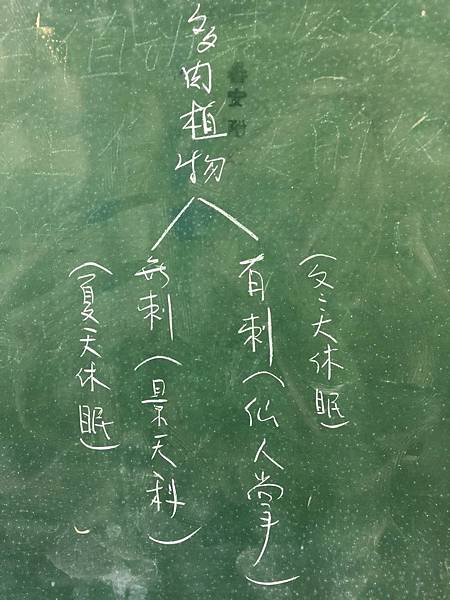 多肉植物
(冬天休眠)
有刺(仙人掌)
無刺(景天科)
(夏天休眠)